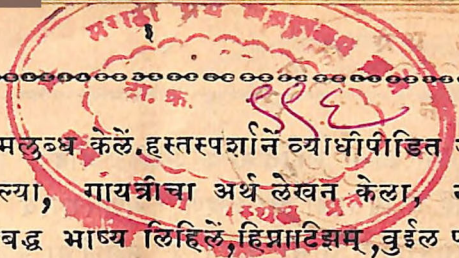 मराठी ग्रंथ संग्रहालय
दा. क्र. ९९६
मलुब्ध केलें.हस्तस्पर्शानें व्याधीपीडित
ल्या, गायत्रीचा अर्थ लेखन केला,
बद्ध भाष्य लिहिलें,हिप्नाटिझम्,वुईल